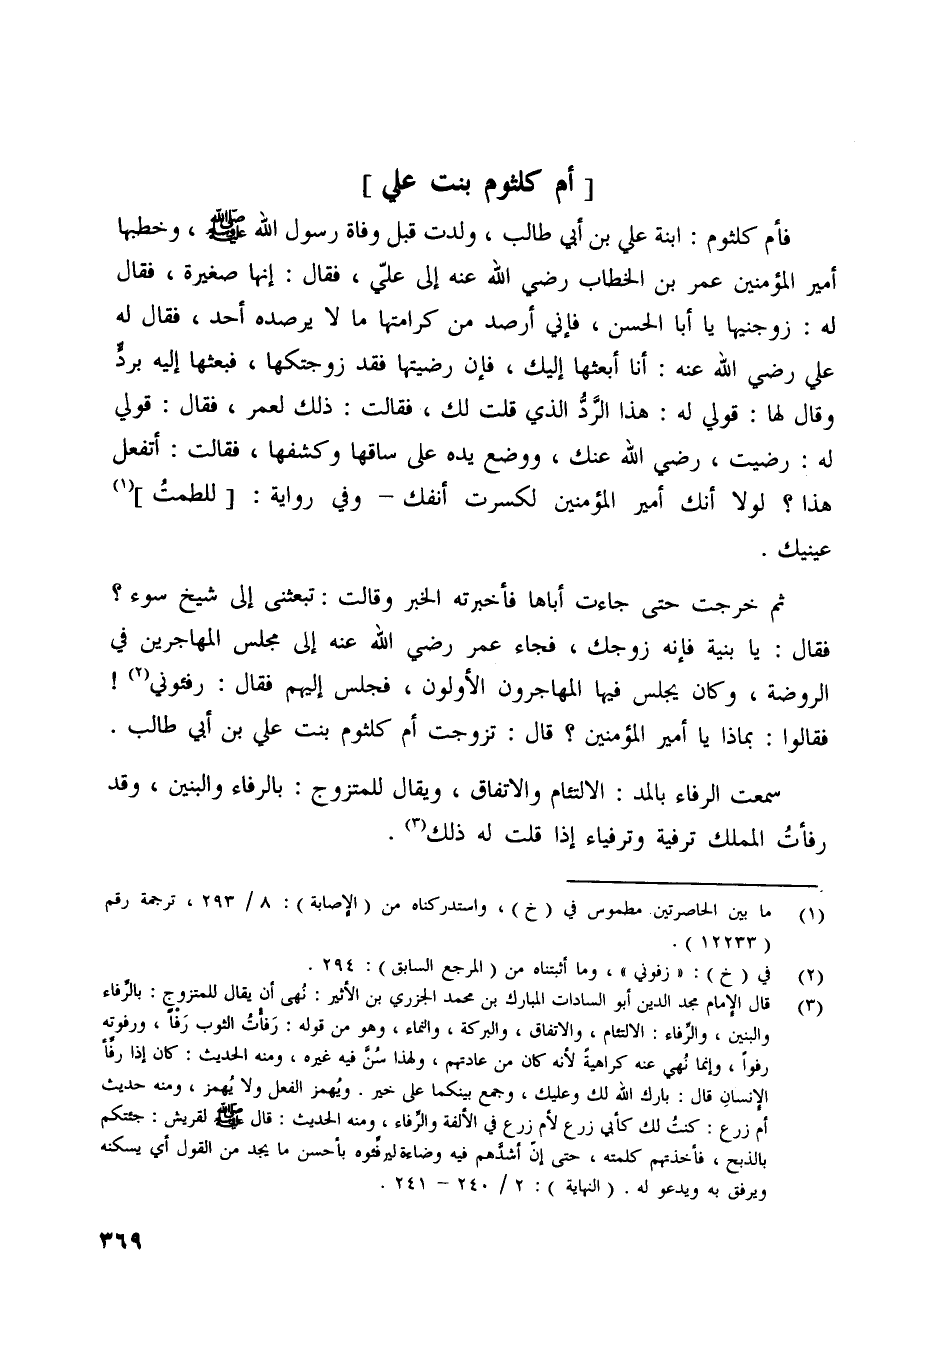 [ أم كلثوم بنت علي ]
فأم كلثوم : ابنة علي بن أبي طالب ، ولدت قبل وفاة رسول الله ﷺ ، وخطبها
أمير المؤمنين عمر بن الخطاب رضي الله عنه إلى عليّ ، فقال : إنها صغيرة ، فقال
له : زوجنيها يا أبا الحسن ، فإني أرصد من كرامتها ما لا يرصده أحد ، فقال له
علي رضي الله عنه : أنا أبعثها إليك ، فإن رضيتها فقد زوجتكها ، فبعثها إليه بردٍّ
وقال لها : قولي له : هذا الرَّدُّ الذي قلت لك ، فقالت : ذلك لعمر ، فقال : قولي
له : رضيت ، رضي الله عنك ، ووضع يده على ساقها وكشفها ، فقالت : أتفعل
هذا ؟ لولا أنك أمير المؤمنين لكسرت أنفك – وفي رواية : [ للطمتُ ](١)
عينيك .
ثم خرجت حتى جاءت أباها فأخبرته الخبر وقالت : تبعثنى إلى شيخ سوء ؟
فقال : يا بنية فإنه زوجك ، فجاء عمر رضي الله عنه إلى مجلس المهاجرين في
الروضة ، وكان يجلس فيها المهاجرون الأولون ، فجلس إليهم فقال : رفئوني(٢) !
فقالوا : بماذا يا أمير المؤمنين ؟ قال : تزوجت أم كلثوم بنت علي بن أبي طالب .
سمعت الرفاء بالمد : الالتئام والاتفاق ، ويقال للمتزوج : بالرفاء والبنين ، وقد
رفأتُ المملك ترفية وترفياء إذا قلت له ذلك(٣) .
(١) ما بين الحاصرتين مطموس في ( خ ) ، واستدركناه من ( الإصابة ) : ٨ / ٢٩٣ ، ترجمة رقم
( ١٢٢٣٣ ) .
(٢) في ( خ ) : « زفوني » ، وما أثبتناه من ( المرجع السابق ) : ٢٩٤ .
(٣) قال الإمام مجد الدين أبو السادات المبارك بن محمد الجزري بن الأثير : نُهى أن يقال للمتزوج : بالرِّفاء
والبنين ، والرِّفاء : الالتئام ، والاتفاق ، والبركة ، والنماء ، وهو من قوله : رَفأْتُ الثوب رَفْأً ، ورفوته
رفواً ، وإنما نُهي عنه كراهيةً لأنه كان من عادتهم ، ولهذا سُنَّ فيه غيره ، ومنه الحديث : كان إذا رفَّأ
الإنسانِ قال : بارك الله لك وعليك ، وجمع بينكما على خير . ويُهمز الفعل ولا يُهمز ، ومنه حديث
أم زرع : كنتُ لك كأبي زرع لأم زرع في الألفة والرِّفاء ، ومنه الحديث : قال ﷺ لقريش : جئتكم
بالذبح ، فأخذتهم كلمته ، حتى إنّ أشدَّهم فيه وضاءة ليرفِّئوه بأحسن ما يجد من القول أي يسكنه
ويرفق به ويدعو له . ( النهاية ) : ٢ / ٢٤٠ – ٢٤١ .
٣٦٩